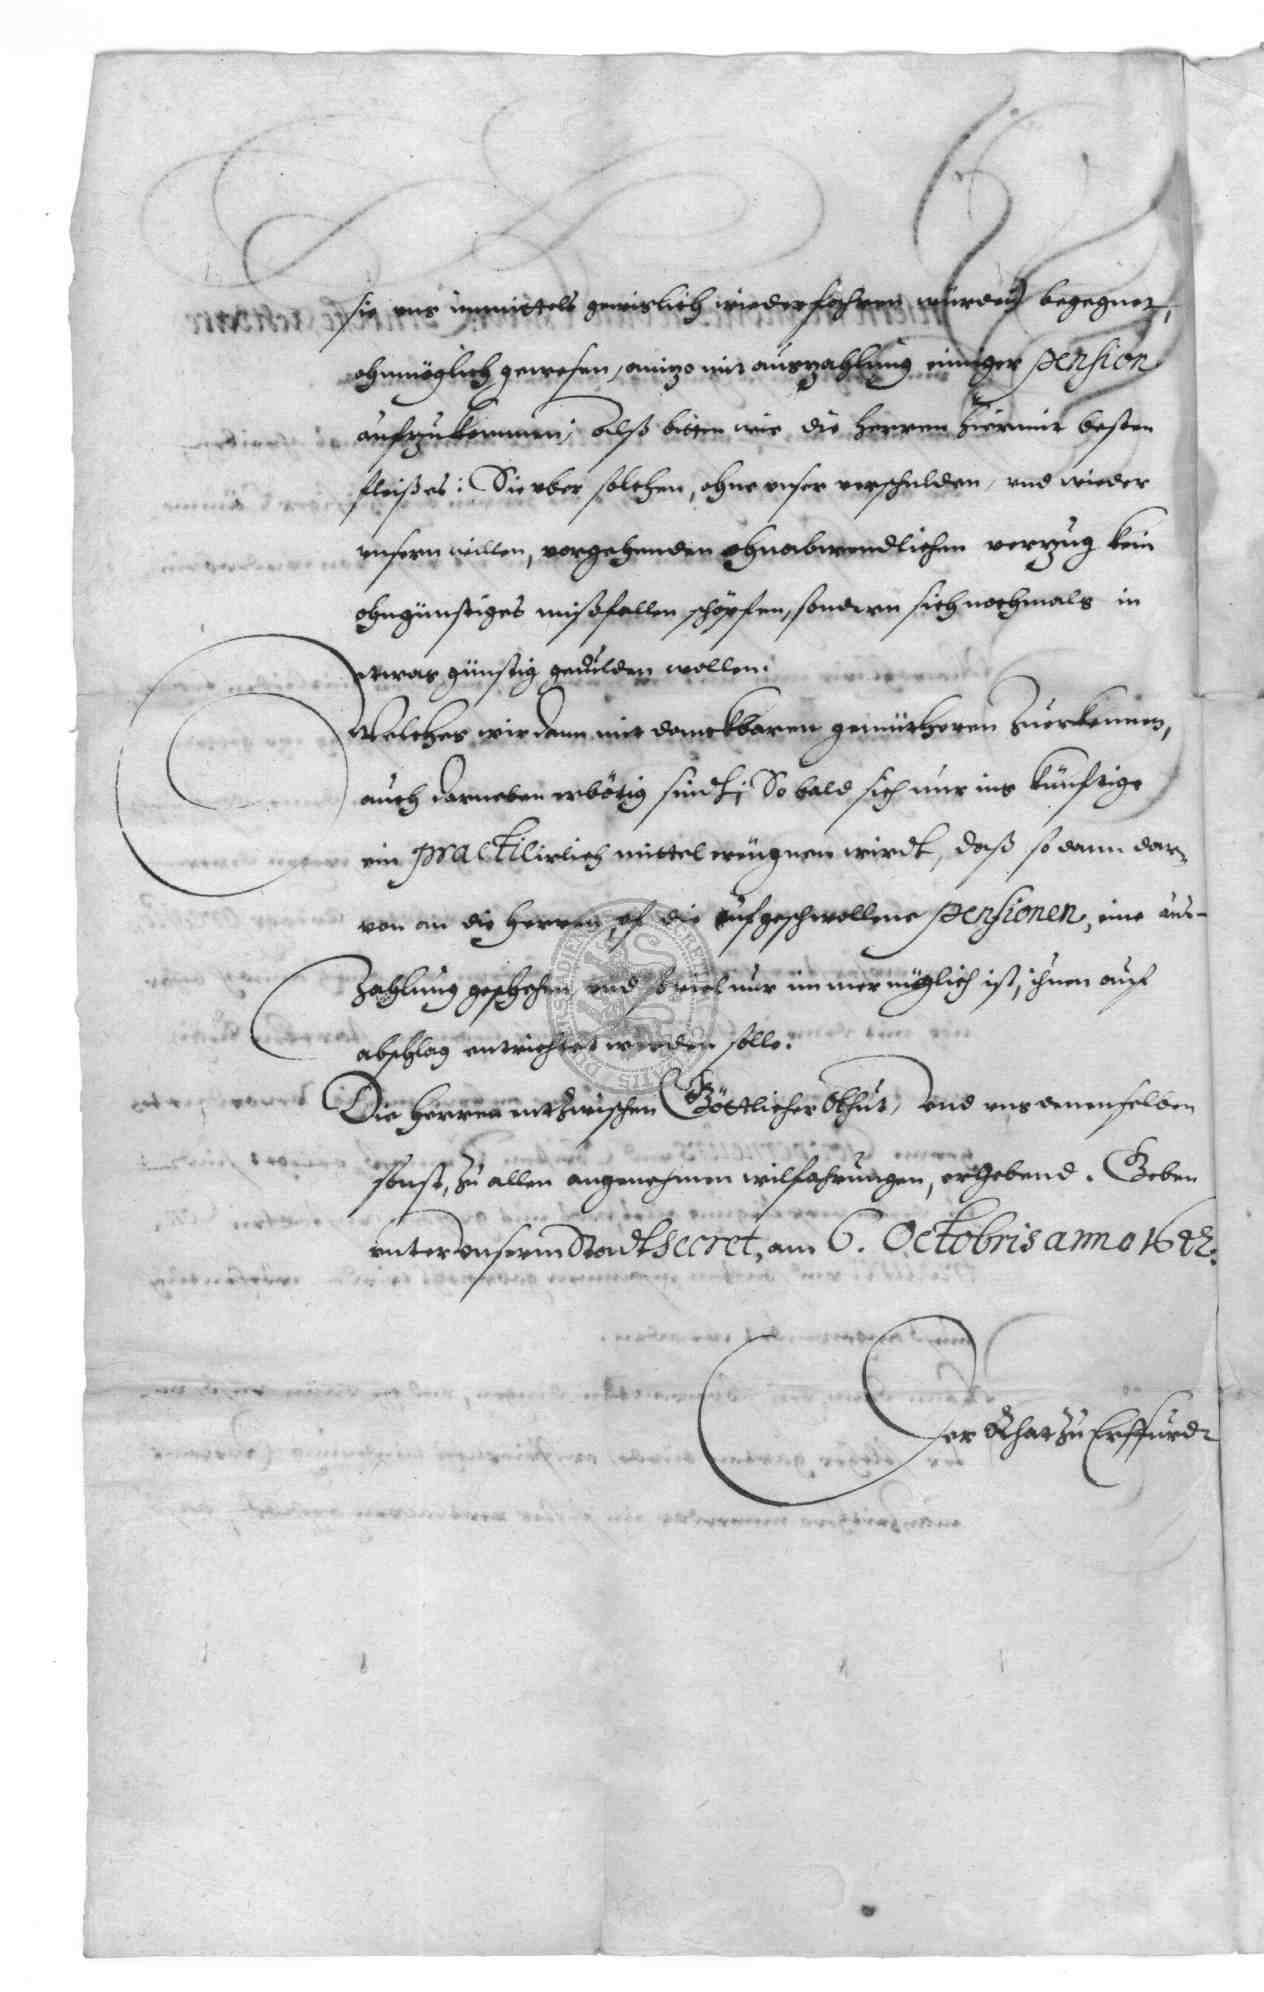 sie uns inmittels gewislich wiederfahren würden) begegnet,
ohnmöglich gewesen, anizo mit auszahlung einiger pension
aufzukommen; Alß bitten wir die Herren hiermit besten
fleißes: Sie uber solchen, ohne unser verschulden, und wieder
unsern willen, vorgehenden ohnabwendlichen verzug kein
ohngünstiges mißfallen schöpfen, sondern sich nochmals in
etwas günstig gedulden wollen.
Welches wir dann mit danckbaren gemütheren zuerkennen,
auch darneben erbötig sindt; So bald sich nur ins künftige
ein practicirlich mittel ereugnen wirdt, daß so dann dar-
von an die Herren, uf die ufgeschwollene pensionen, eine aus-
zahlung geschehen, und so viel nur immer müglich ist, ihnen auf
abschlag entrichtet werden solle.
Die Herren entzwischen Göttlicher Obhut, und uns denenselben
sonst, zu allen angenehmen wilfahrungen, ergebend. Geben
unter unserm Stadtsecret, am 6. Octobris anno 1642.
Der Rhat zu Erffurdt